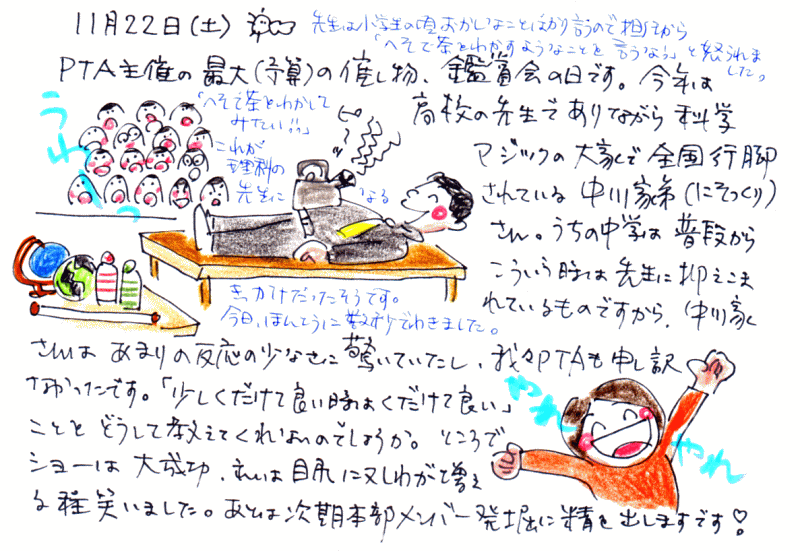 11月22日(土)
先生は小学生の頃おかしなことばかり言うので担任から
「へそで茶をわかすようなことを言うな!」と怒られました。
PTA主催の最大(予算)の催し物、鑑賞会の日です。今年は
高校の先生でありながら科学
マジックの大家で全国行脚
されている中川家弟(にそっくり)
さん。うちの中学は普段から
こういう時は先生に抑えこま
れているものですから、中川家
さんはあまりの反応の少なさに驚いていたし、我々PTAも申し訳
なかったです。「少しくだけて良い時はくだけて良い」
ことをどうして教えてくれないのでしょうか。ところで
ショーは大成功、私は目尻に又しわが増え
る程笑いました。あとは次期本部メンバー発掘に精を出しますです♡
「へそで茶をわかして
みたい!!」
これが
理科の
先生に
なる
きっかけだったそうです。
今日、ほんとうに数秒でわきました。
うわーっ
やれ
やれ